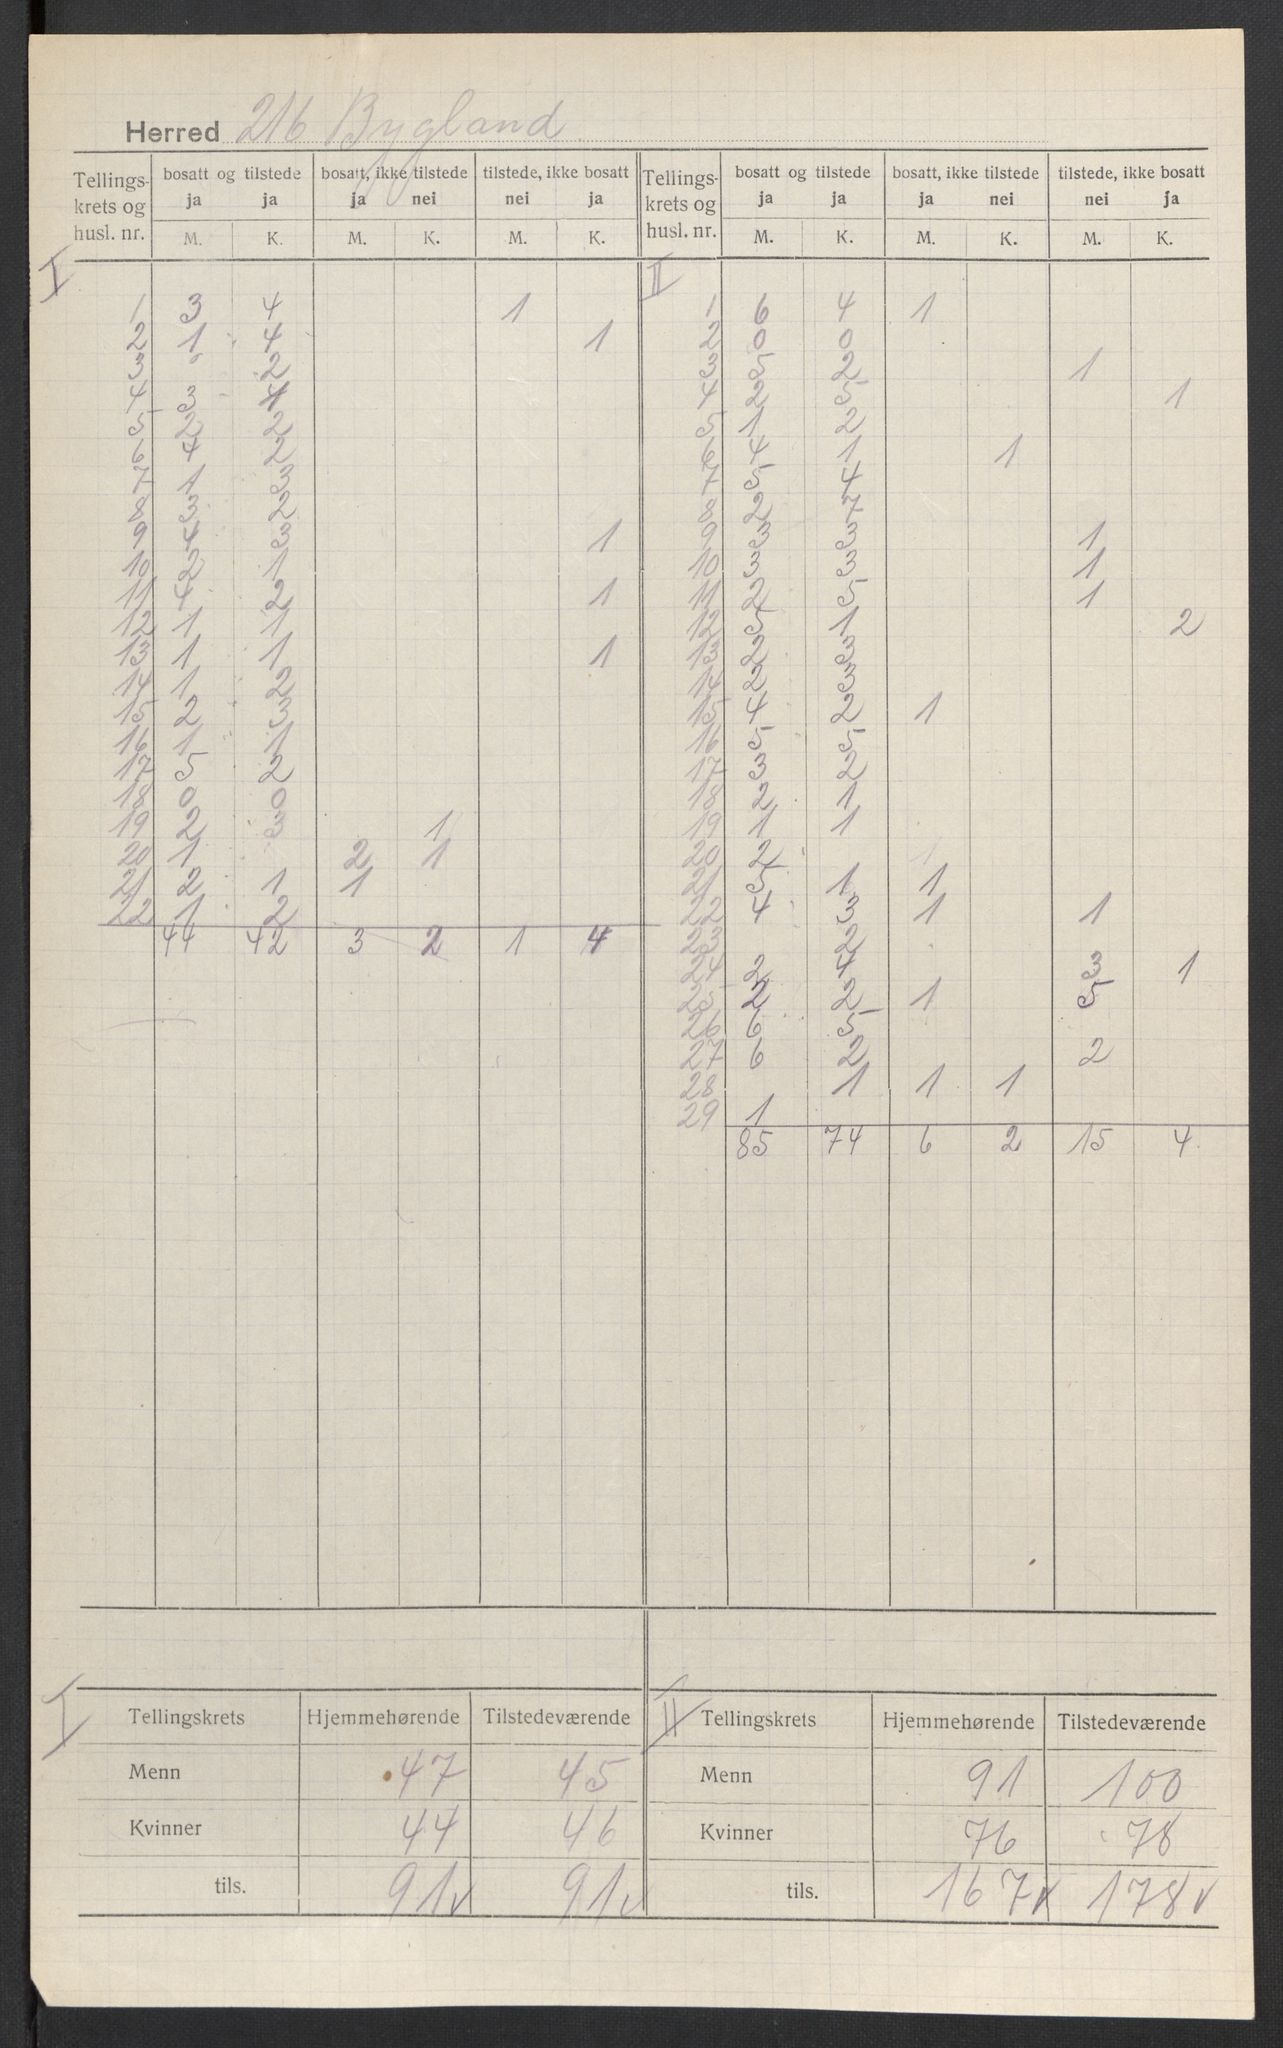 Herred 216 Bygland
Tellings- krets og husl. nr. | bosatt og tilstede | bosatt, ikke tilstede | tilstede, ikke bosatt | Tellings- krets og husl. nr. | bosatt og tilstede | bosatt, ikke tilstede | tilstede, ikke bosatt
ja ja ja nei nei ja ja ja ja nei nei ja
M. K. M. K. M. K. M. K. M. K. M. K.
I
1 3 4 1
2 1 4 1
3 2
4 3 4
5 2 2
6 4 2
7 1 3
8 3 2
9 4 3 1
10 2 1
11 4 2 1
12 1 1
13 1 1 1
14 1 2
15 2 3
16 1 1
17 5 2
18 0 0
19 2 3 1
20 1 2 1
21 2 1 1
22 1 2
44 42 3 2 1 4
II
1 6 4 1
2 0 0
3 5 2 1
4 2 5 1
5 1 2
6 4 1 1
7 5 4
8 2 7
9 3 3 1
10 3 3 1
11 2 5 1
12 5 1 2
13 2 3
14 2 3
15 4 2 1
16 5 5
17 3 2
18 2 1
19 1 1
20 2
21 5 1 1
22 4 3 1 1
23 2
24 2 4 3 1
25 2 2 1 5
26 6 5
27 6 2 2
28 1 1 1
29 1
85 74 6 2 15 4
I
Tellingskrets Hjemmehørende Tilstedeværende
Menn 47 45
Kvinner 44 46
tils. 91 91
II
Tellingskrets Hjemmehørende Tilstedeværende
Menn 91 100
Kvinner 76 78
tils. 167 178